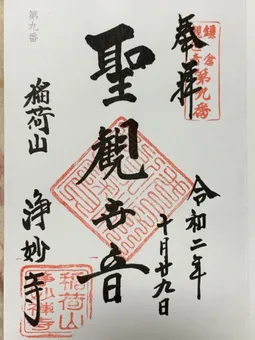 奉拝
鎌倉
観音
第九番
令和二年
十月廿九日
聖観世音
第九番
稲荷山
浄妙寺
稲荷山
浄妙禅寺